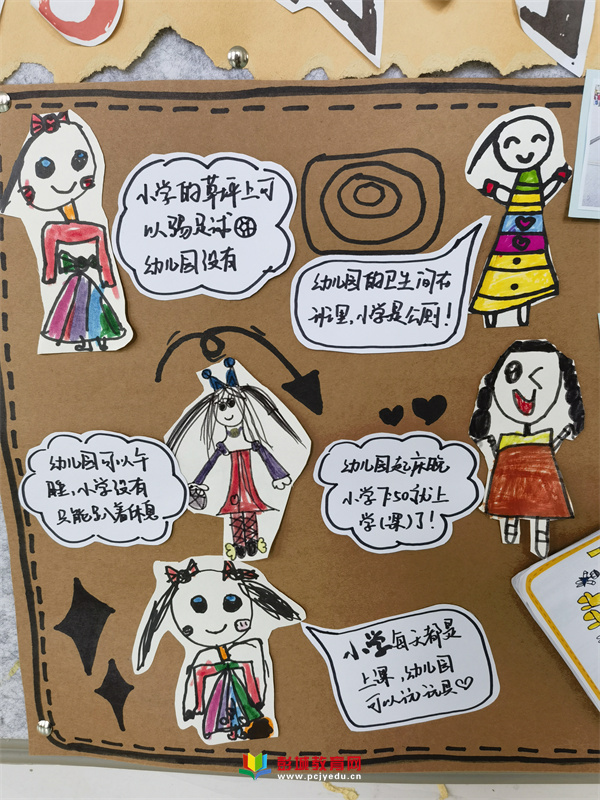 小学的草坪上可
以踢足球
幼儿园没有
幼儿园的卫生间在
班里，小学是公厕！
幼儿园可以午
睡，小学没有
只能趴着休息
幼儿园起床晚
小学7:50就上
学(课)了！
小学每天都是
上课，幼儿园
可以玩玩具
彭城教育网
www.pcjyedu.cn